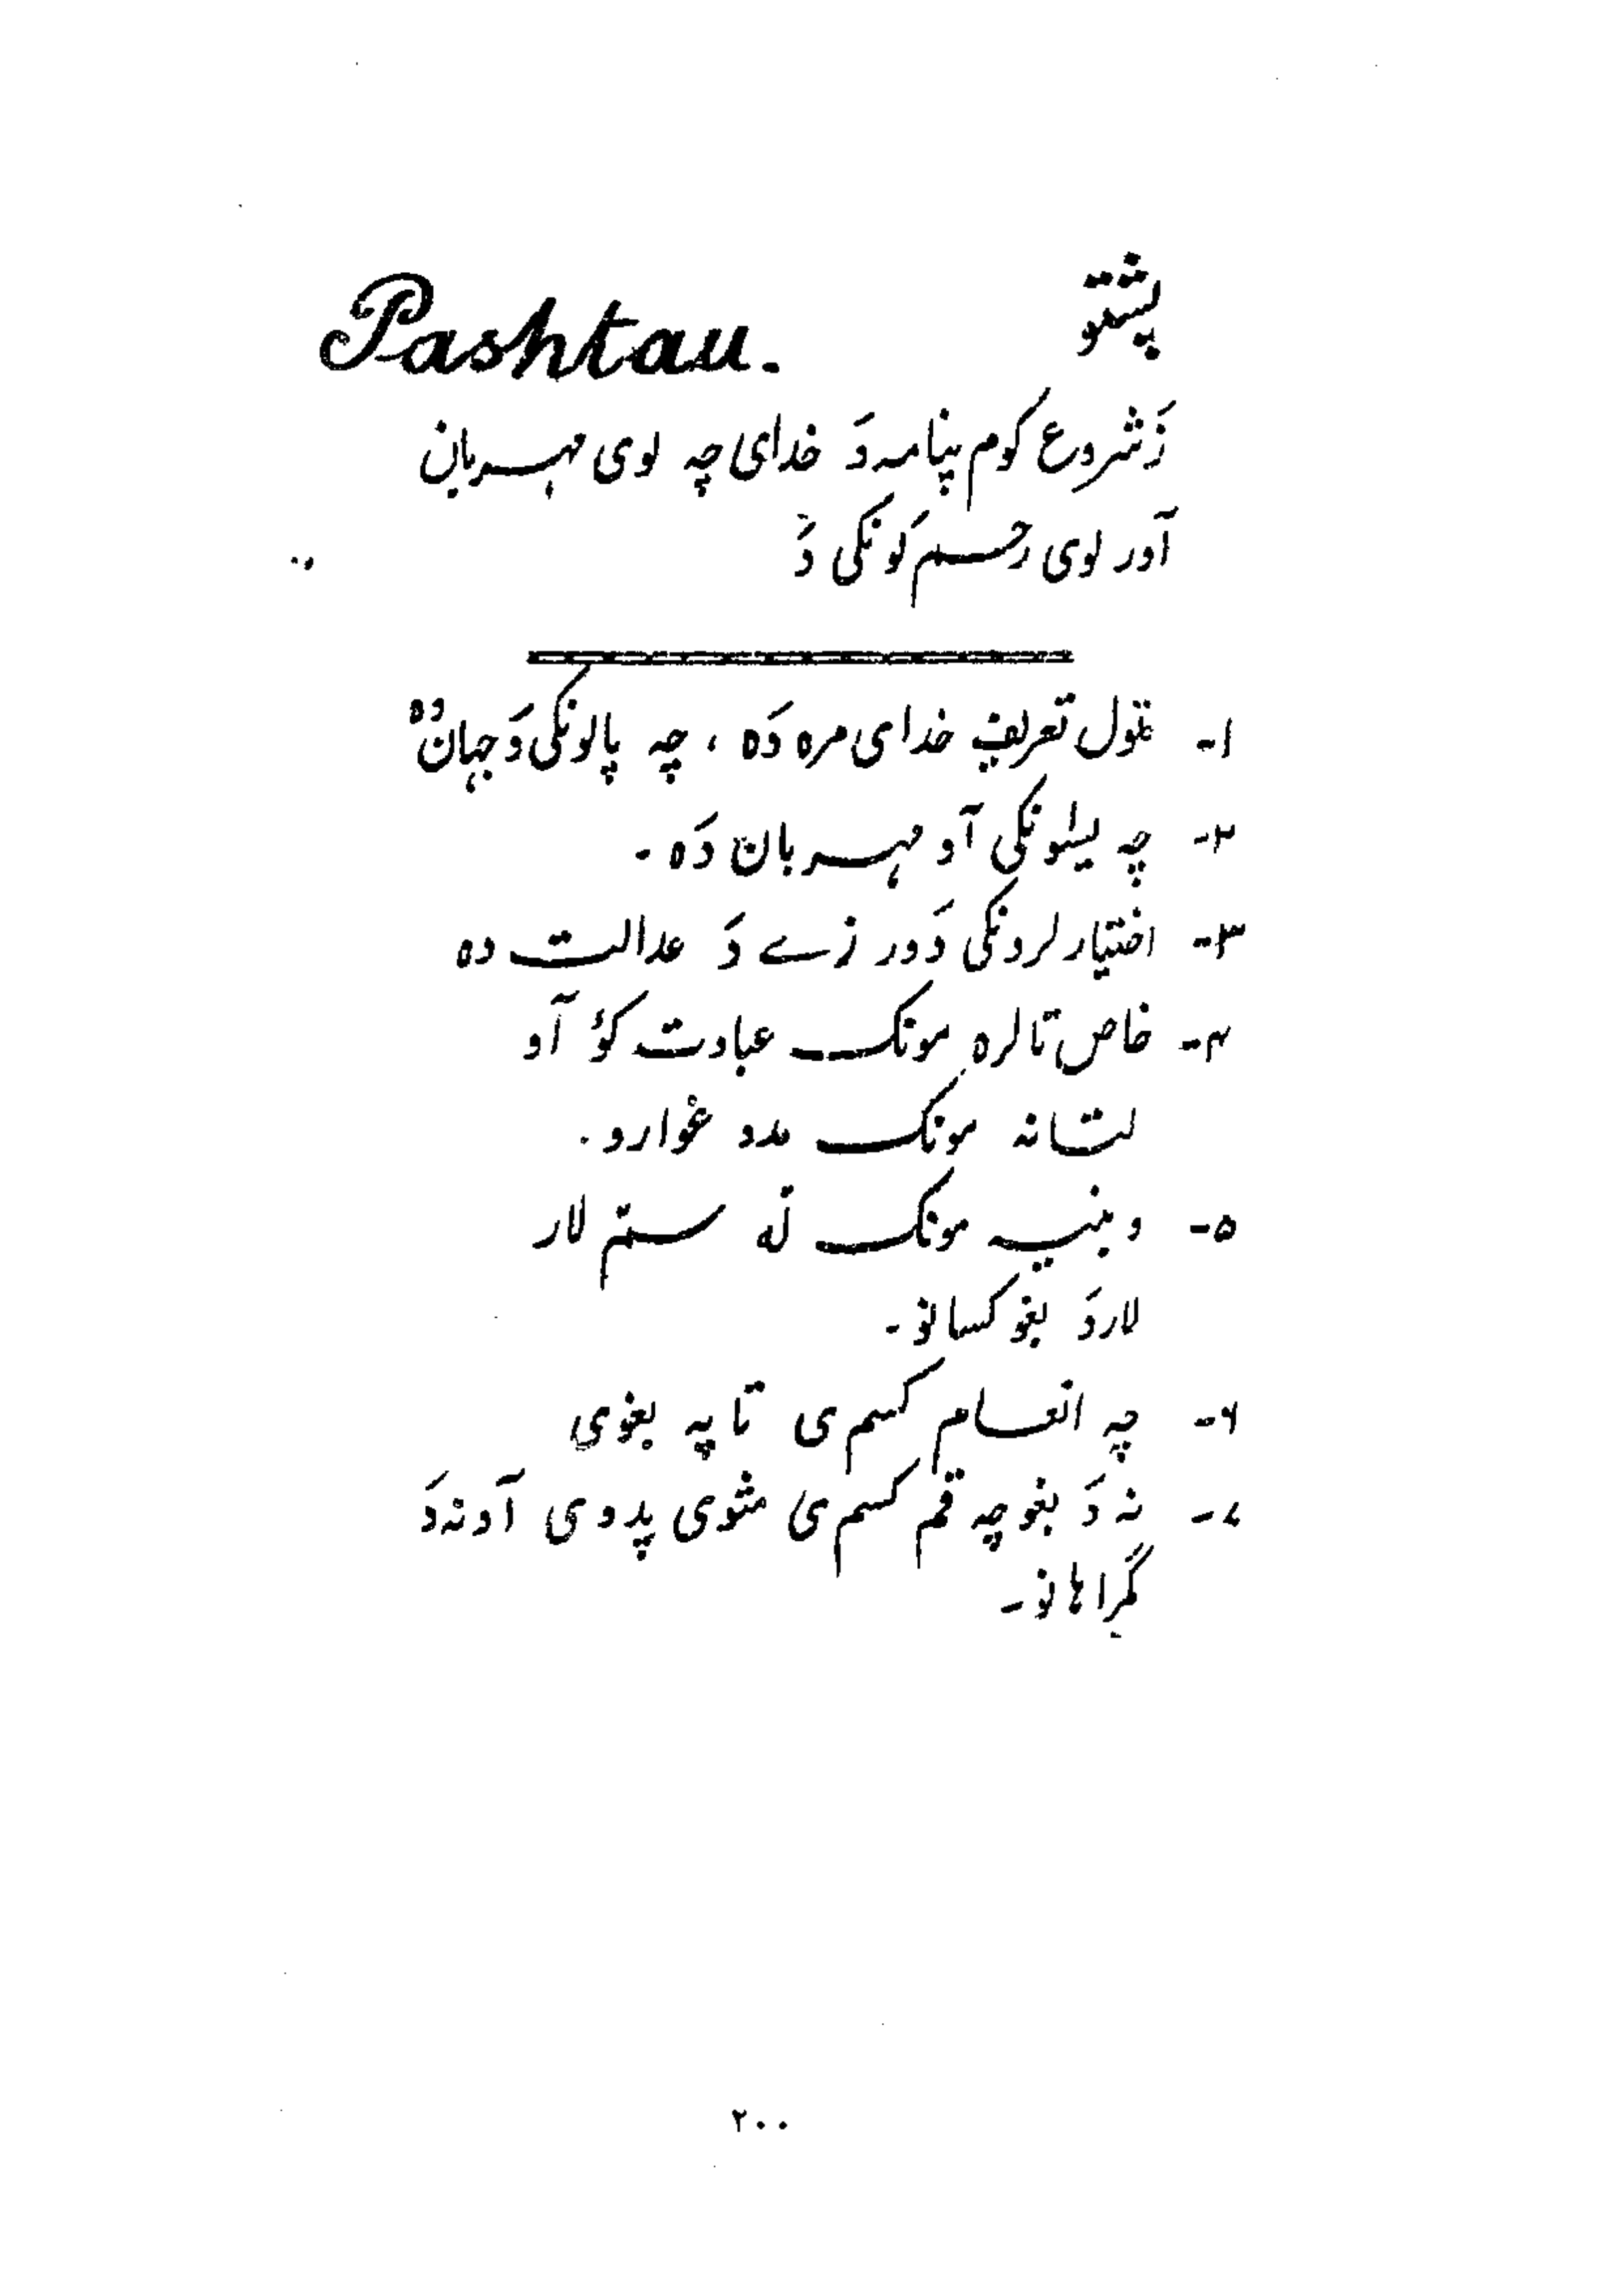 پشتو
Pashtau.
زَ شروع کوم پنامه دَ خدای چه لوی مهربان
آور لوی رحم کونکی دَ
۱- ټول تعریف خدای مره دَه ، چه پالونکی دَ جهان دُه
۲- چه آو مهربان دَه -
۳- اختیار لرونکی دَ ور زے دَ عدالت ده
۴- خاص تا لره مونک عبادت کوُ آو
لتانه مونک مدد غواړو .
۵- مونک ته ستم لار
لار دَ بغو کسانو -
۶- چه انعام کسم ی تا په بغوی
۷- نه دَ بغو چه قم کسم ی شوی پدوی آو نه دَ
گمراهانو -
۲۰۰